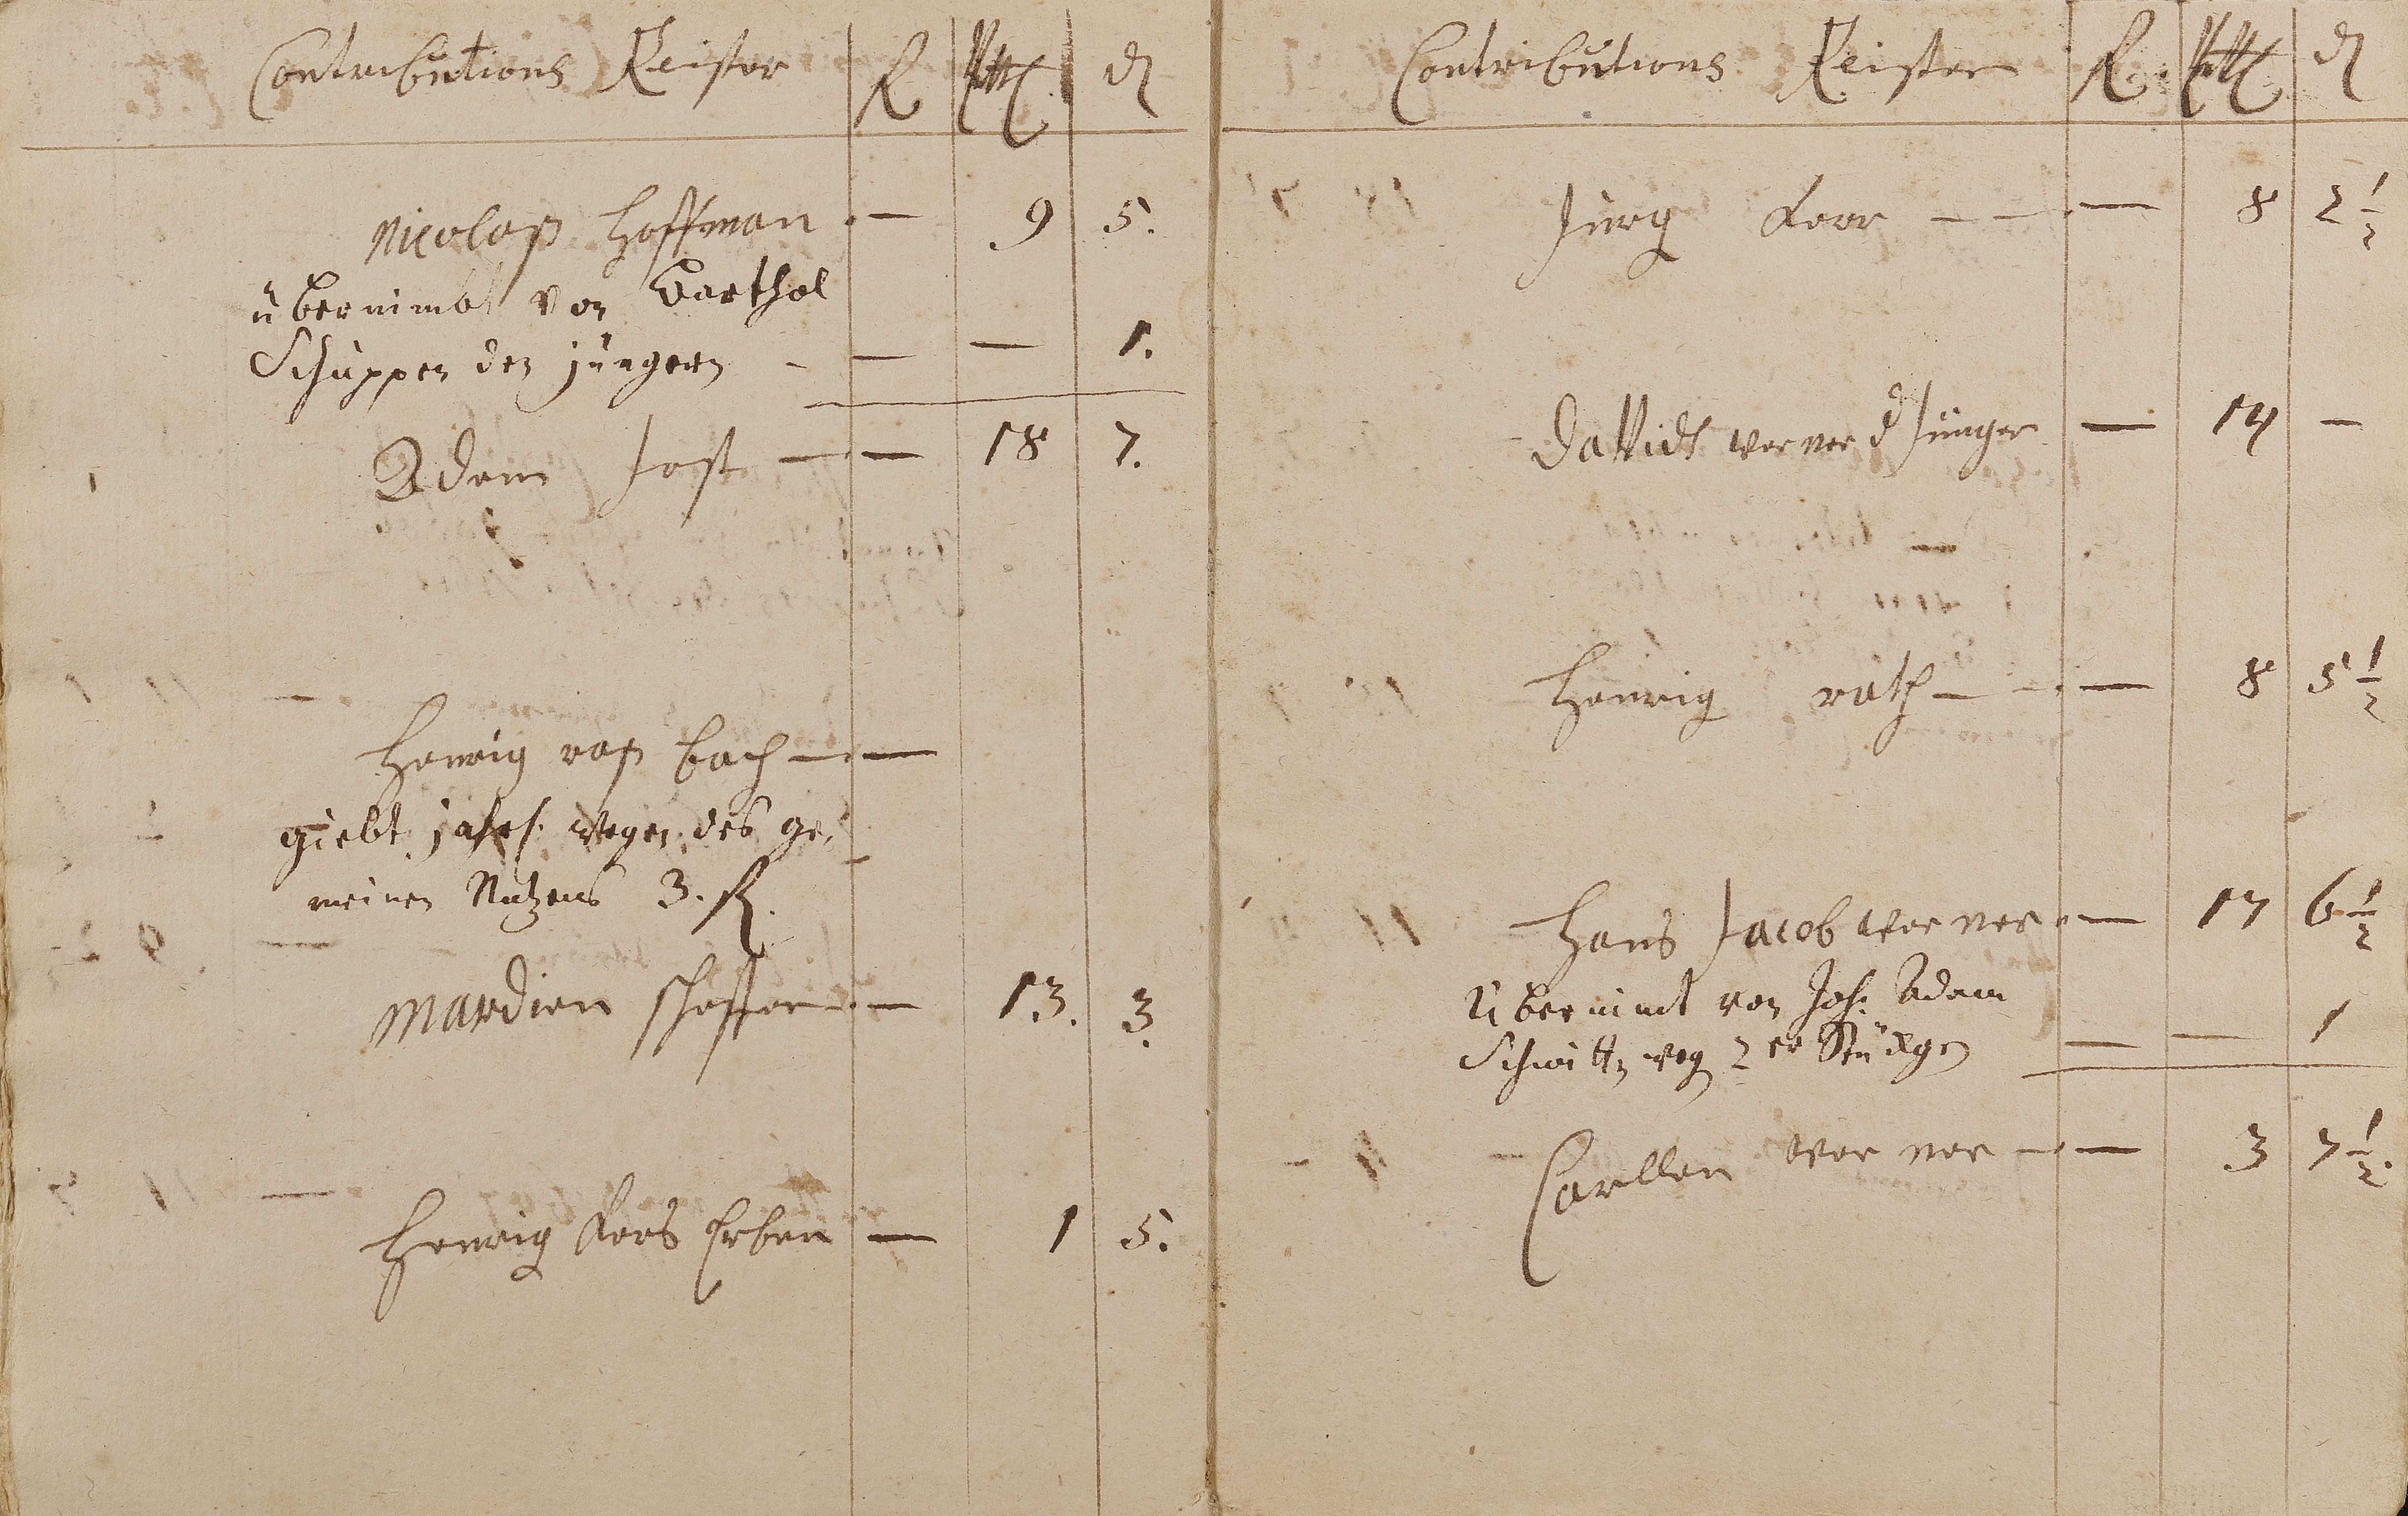 Contributions Reister R Att d
Nicolaß Hoffman — 9 5.
übernimbt von Barthol
Schuppen den jüngern — — 1.
Adam Jost — 18 7.
Henrig roß bach —
giebt jahrl. wegen des ge-
meinen Nutzens 3. R.
Mardien scheffer — 13. 3.
Henrig Kors Erben — 1 5.
Contributions Reister R. Att d
Jürg Korr — 8 2 1/2
Davidt werner d Jünger — 14 —
Henrig rath — 8 5 1/2
Hans Jacob werner — 17 6 1/2
Übernimt von Joh. Adam
Schmittn weg 2er Stückgen — — 1
Carllen werner — 3 7 1/2.